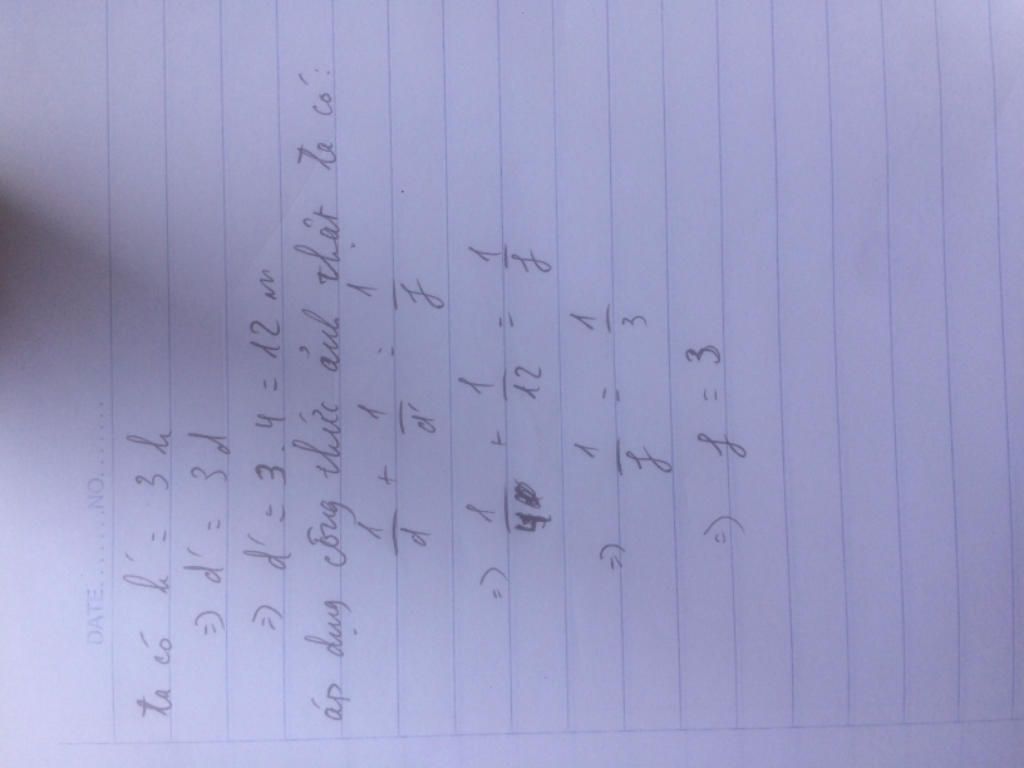 DATE..........NO..........
ta có h' = 3 h
=) d' = 3 d
=) d' = 3 . 4 = 12 m
áp dụng công thức ảnh thật ta có:
1/d + 1/d' = 1/f
=) 1/4 + 1/12 = 1/f
=) 1/f = 1/3
=) f = 3